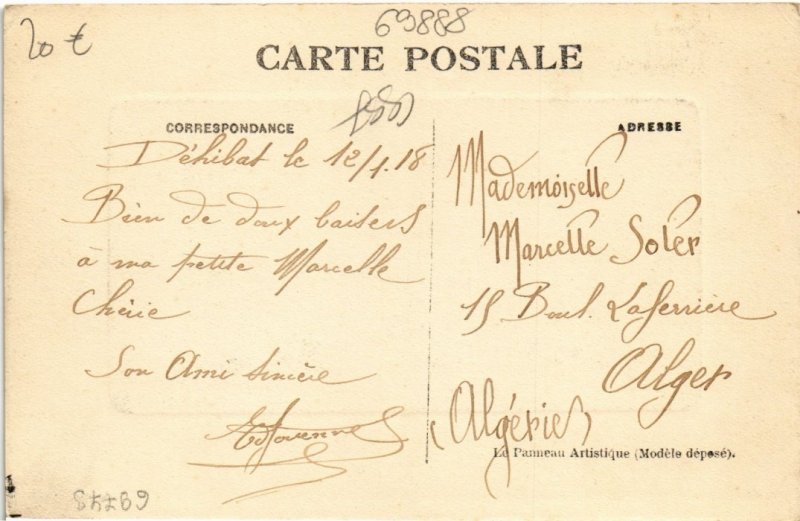 20 €
69888
CARTE POSTALE
CORRESPONDANCE
Déhibat le 12/1.18
Bien de doux baisers
à ma petite Marcelle
Chérie
Son Ami sincère
ADRESSE
Mademoiselle
Marcelle Soler
15 Boul. Laferrière
Alger
(Algérie)
Le Panneau Artistique (Modèle déposé).